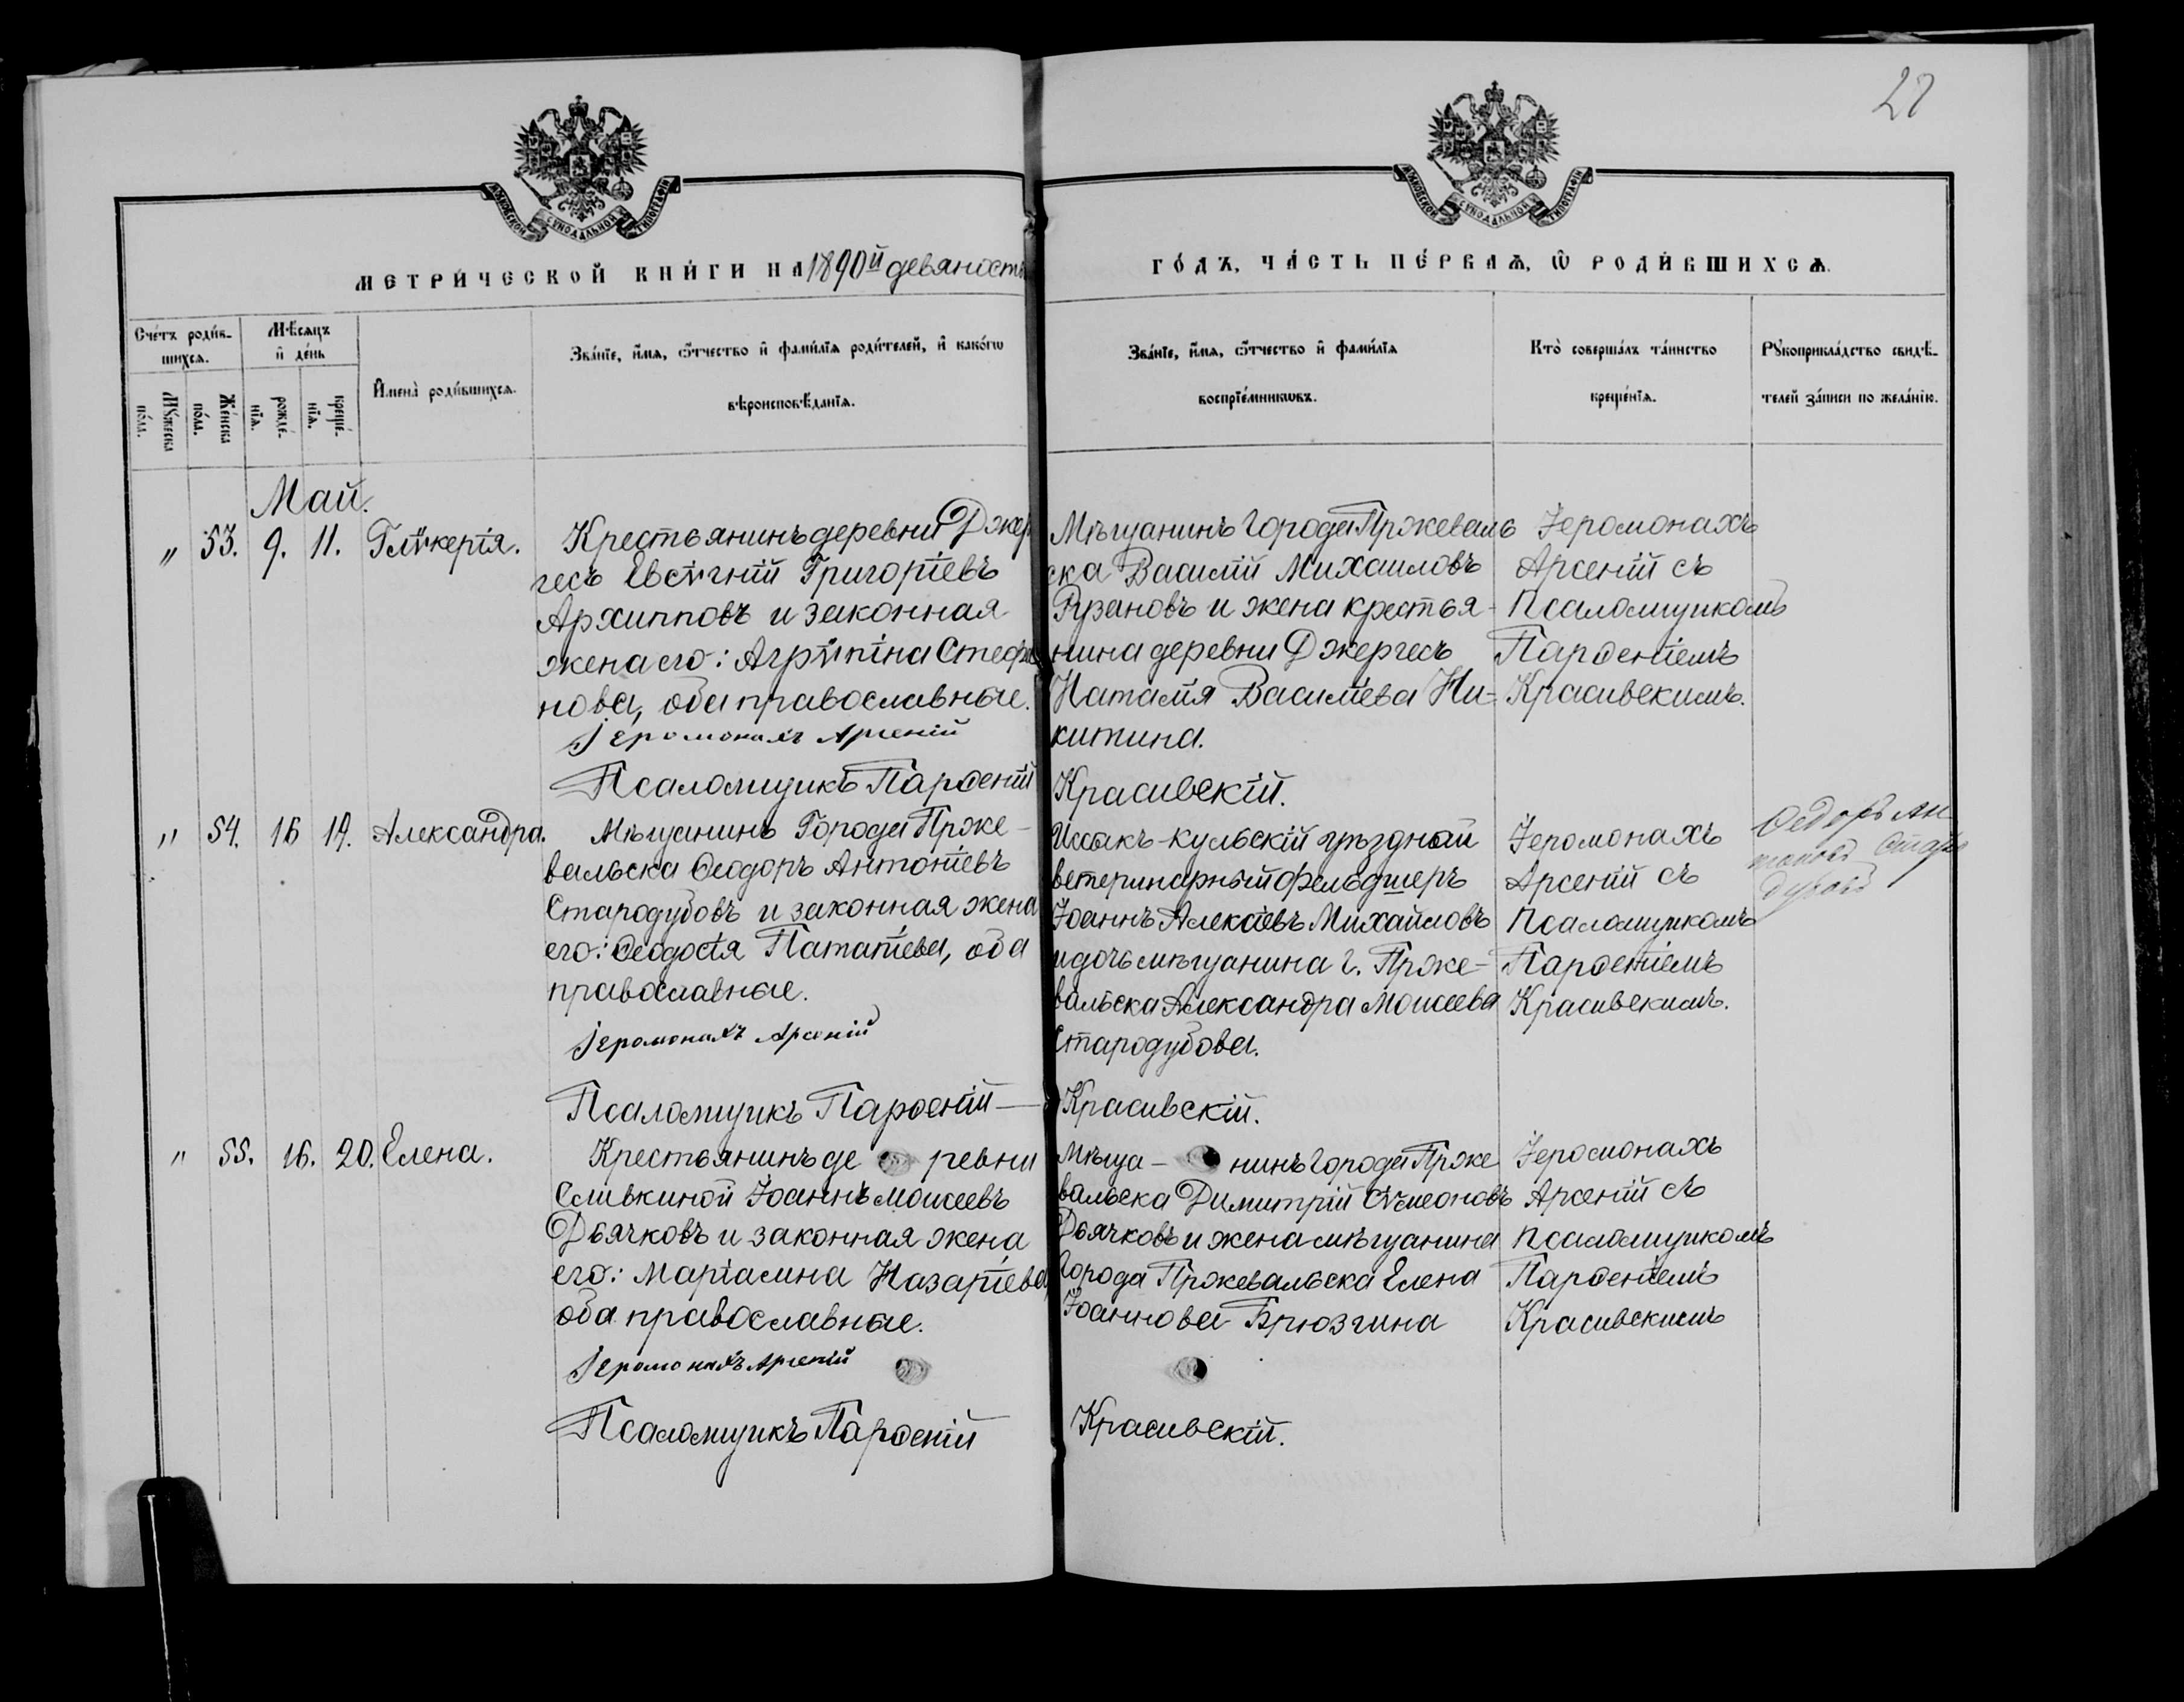 27
МОСКОВСКОЙ СУНОДАЛЬНОЙ ТИПОГРАФІИ
МОСКОВСКОЙ СУНОДАЛЬНОЙ ТИПОГРАФІИ
МЕТРИ́ЧЕСКОЙ КНИ́ГИ НА 1890й девяносты
ГО́ДЪ, ЧА́СТЬ ПЕ́РВАѦ, Ѿ РОДИ́ВШИХСѦ.
Сче́тъ роди́в-
шихсѧ.
Мꙋ́жеска
по́ла.
Же́нска
по́ла.
Мѣ́сѧцъ
и҆ де́нь
рожде́-
нїѧ.
креще́-
нїѧ.
И҆мена̀ роди́вшихсѧ.
Зва́нїе, и҆́мѧ, ѻ҆́тчество и҆ фами́лїѧ роди́телей, и҆ како́гѡ
вѣроисповѣ́данїѧ.
Зва́нїе, и҆́мѧ, ѻ҆́тчество и҆ фами́лїѧ
воспрїе́мникѡвъ.
Кто̀ соверша́лъ та́инство
креще́нїѧ.
Рꙋкоприкла́дство свидѣ́-
телей за́писи по жела́нїю.
Май.
" 53. 9. 11. Глѵкерія.
Крестьянинъ деревни Джер
гесъ Евсѵгній Григоріевъ
Архипповъ и законная
жена его: Агрѵпіна Стефа
нова, оба православные.
Іеромонахъ Арсеній
Псаломщикъ Парѳеній
Мѣщанинъ Города Пржеваль
ска Василій Михаиловъ
Рузановъ и жена крестья-
нина деревни Джергесъ
Наталія Васильева Ни-
китина.
Красивскій.
Іеромонахъ
Арсеній съ
Псаломщикомъ
Парѳеніемъ
Красивскимъ.
" 54. 16 19. Александра.
Мѣщанинъ Города Прже-
вальска Ѳеодоръ Антоніевъ
Стародубовъ и законная жена
его: Ѳеодосія Патапіева, оба
православные.
Іеромонахъ Арсеній
Псаломщикъ Парѳеній —
Иссыкъ-кульскій уѣздной
ветеринарный фельдшеръ
Іоаннъ Алексіевъ Михайловъ
и дочь мѣщанина г. Прже-
вальска Александра Моисеева
Стародубова.
Красивскій.
Іеромонахъ
Арсеній съ
Псаломщикомъ
Парѳеніемъ
Красивскимъ.
Ѳедоръ Ан
тоновъ Старо
дубовъ
" 55. 16. 20. Елена.
Крестьянинъ де ревни
Сливкиной Іоаннъ Моисеевъ
Дьячковъ и законная жена
его: Маріамна Назаріева,
оба православные.
Іеромонахъ Арсеній
Псаломщикъ Парѳеній
Мѣща- нинъ Города Прже
вальска Димитрій Сѵмеоновъ
Дьячковъ и жена мѣщанина
Города Пржевальска Елена
Іоаннова Брюзгина
Красивскій.
Іеромонахъ
Арсеній съ
Псаломщикомъ
Парѳеніемъ
Красивскимъ